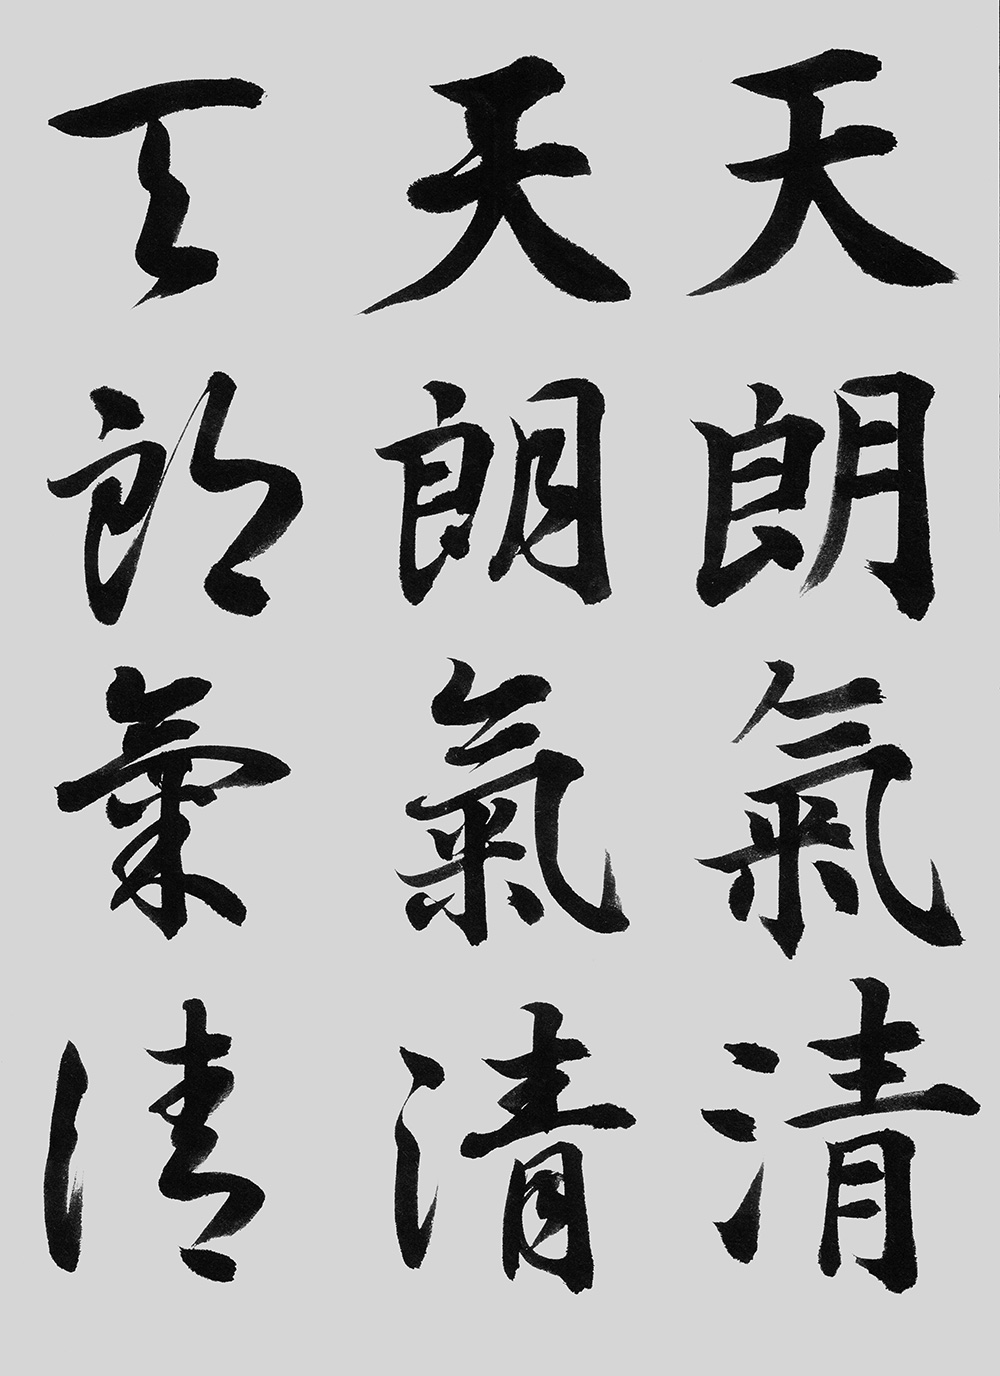 天朗氣清
天朗氣清
天朗氣清